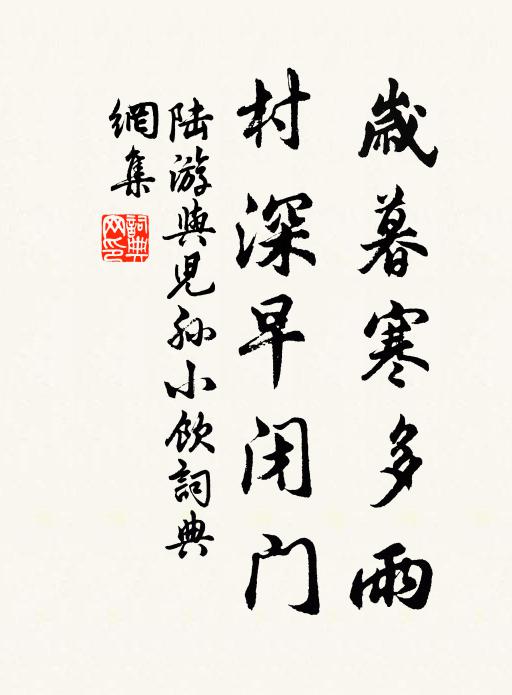 歲暮寒多雨
村深早闭门
陆游與兒孙小飲詞典
網集
詞典網印